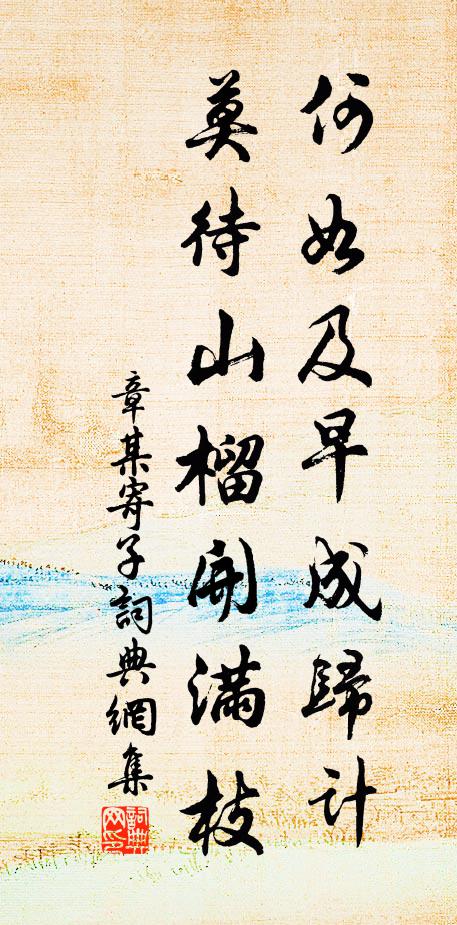 何如及早成歸計
莫待山榴開滿枝
章某寄子詞典網集
詞典
网印